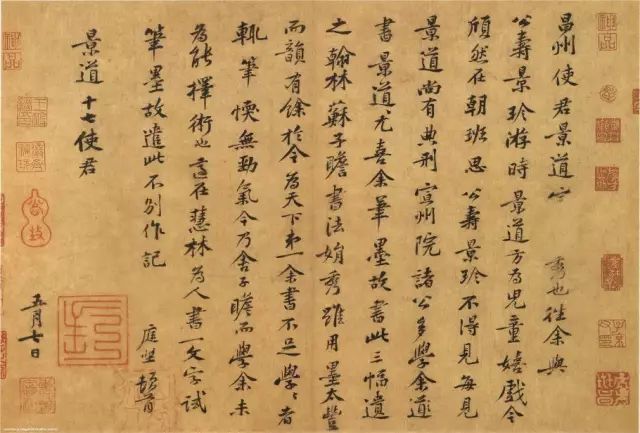 昌州使君景道宗秀也往余與
公壽景珍游時景道方為兒童嬉戲今
頎然在朝班思公壽景珍不得見每見
景道尚有典刑宣州院諸公多學余
書景道尤喜余筆墨故書此三幅遺
之翰林蘇子瞻書法娟秀雖用墨太豐
而韻有餘於今為天下弟一余書不足學〻者
輒筆愞無勁氣今乃舍子瞻而學余未
為能擇術也適在慧林為人書一文字試
筆墨故遣此不別作記 庭堅頓首
景道十七使君
五月七日